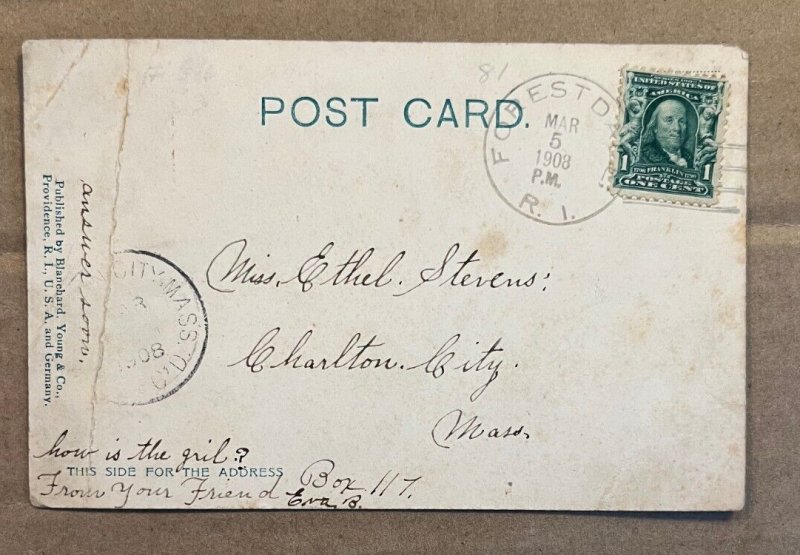 81
POST CARD.
FORESTDA
MAR
5
1908
P.M.
R. I.
UNITED STATES OF
AMERICA
1
FRANKLIN
1
POSTAGE
ONE CENT
answer soon.
Published by Blanchard, Young & Co.,
Providence, R. I., U. S. A. and Germany.
CITY, MASS.
1908
REC'D.
Miss. Ethel. Stevens.
Charlton. City.
Mass.
how is the gril?
THIS SIDE FOR THE ADDRESS
From Your Friend Box 117.
Eva B.